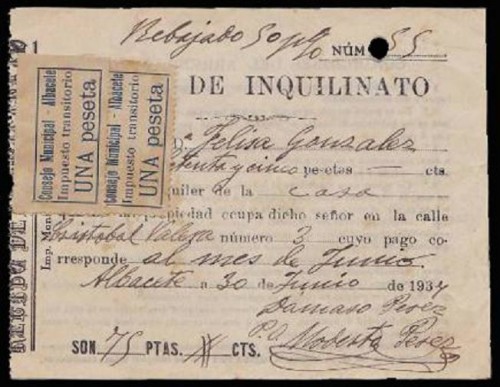 Rebajado 50 p% NÚM 55
DE INQUILINATO
Consejo Municipal - Albacete
Impuesto transitorio
UNA peseta
Consejo Municipal - Albacete
Impuesto transitorio
UNA peseta
D.ª Felisa Gonzalez
tenta y cinco pesetas — cts.
uiler de la casa
piedad ocupa dicho señor en la calle
Cristobal número 3 cuyo pago co-
rresponde al mes de Junio
Albacete a 30 Junio de 1937
Damaso Perez
P.O.
Modesta Perez
SON 75 PTAS. CTS.
Imp.